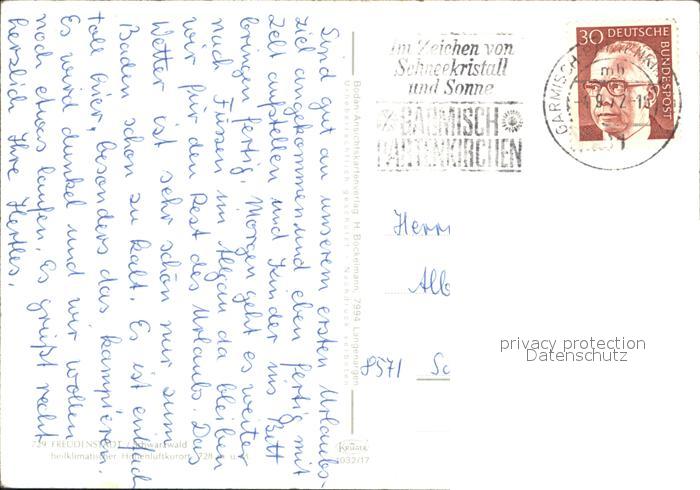 Sind gut an unserem ersten Urlaubs-
ziel angekommen und eben fertig mit
Zelt aufstellen und Kinder ins Bett
bringen fertig. Morgen geht es weiter
nach Füssen im Allgäu da bleiben
wir für den Rest des Urlaubs. Das
Wetter ist sehr schön nur zum
Baden schon zu kalt. Es ist einfach
toll hier, besonders das kampieren.
Es wird dunkel und wir wollen
noch etwas laufen. Es grüßt recht
herzlich Ihre Hertles.
729 FREUDENSTADT / Schwarzwald
heilklimatischer Höhenluftkurort, 728 m ü. M.
Bodan-Ansichtskartenverlag H. Bockelmann, 7994 Langenargen
Urheberrechtlich geschützt - Nachdruck verboten
KRÜGER
1032/17
Im Zeichen von
Schneekristall
und Sonne
GARMISCH
PARTENKIRCHEN
30 DEUTSCHE
BUNDESPOST
GARMISCH
mb
Herrn
Alb
8571 Sc
privacy protection
Datenschutz